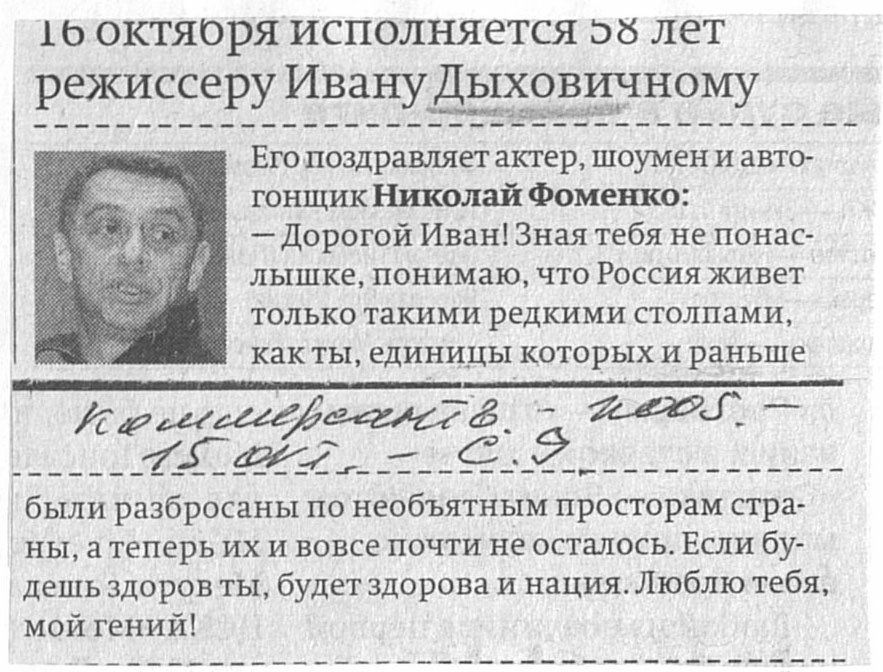 16 октября исполняется 58 лет
режиссеру Ивану Дыховичному
Его поздравляет актер, шоумен и авто-
гонщик Николай Фоменко:
— Дорогой Иван! Зная тебя не понас-
лышке, понимаю, что Россия живет
только такими редкими столпами,
как ты, единицы которых и раньше
Коммерсантъ. – 2005. –
15 окт. – С. 9.
были разбросаны по необъятным просторам стра-
ны, а теперь их и вовсе почти не осталось. Если бу-
дешь здоров ты, будет здорова и нация. Люблю тебя,
мой гений!